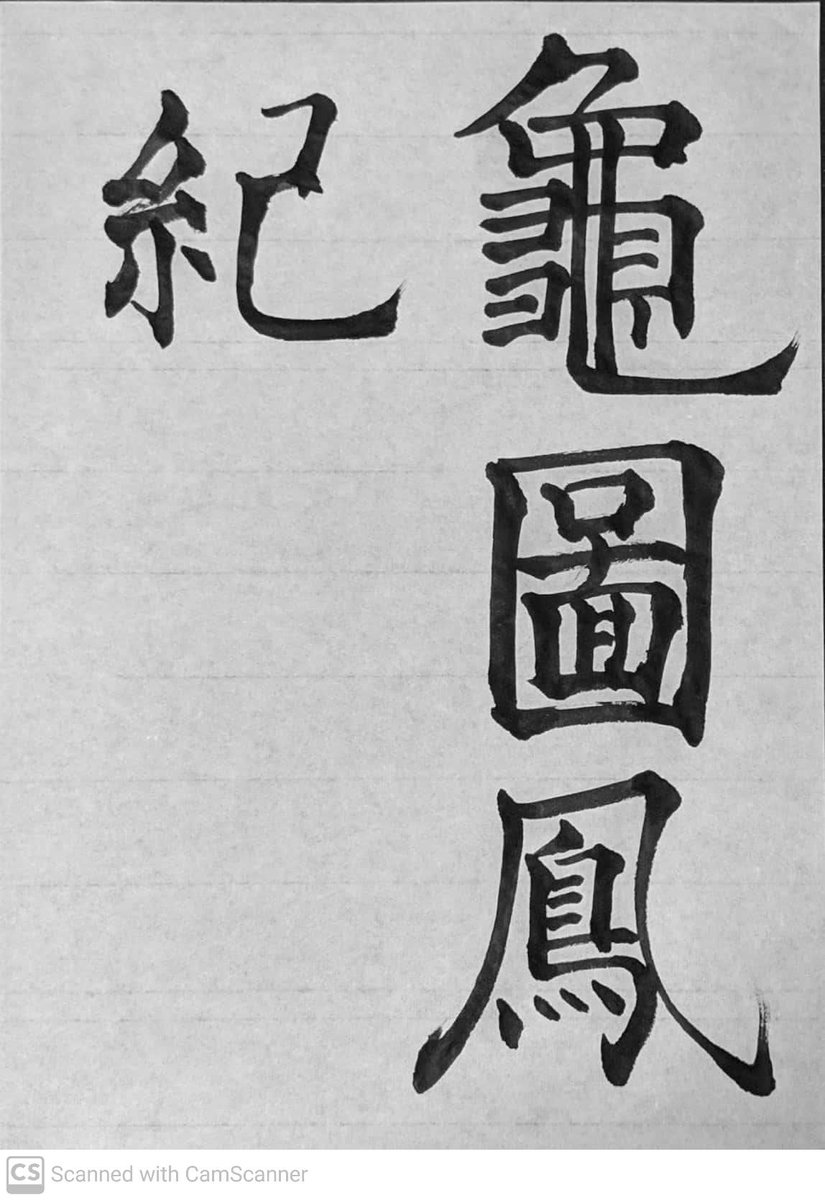 龜圖鳳
紀
CS Scanned with CamScanner